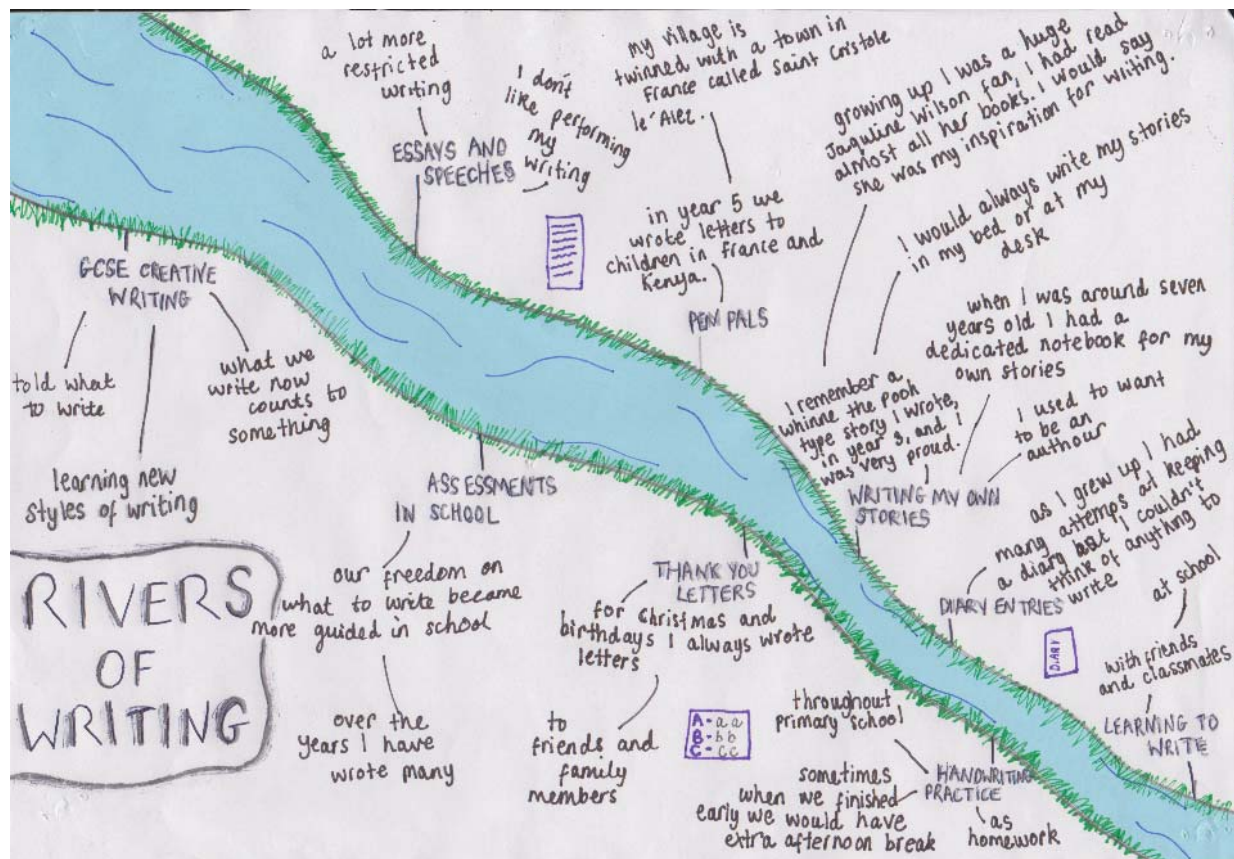 a lot more
restricted
writing
I don't
like performing
my
writing
ESSAYS AND
SPEECHES
my village is
twinned with a town in
France called Saint Cristole
le'Alez.
in year 5 we
wrote letters to
children in France and
Kenya.
PEN PALS
growing up I was a huge
Jaquine Wilson fan, I had read
almost all her books. I would say
she was my inspiration for writing.
I would always write my stories
in my bed or at my
desk
when I was around seven
years old I had a
dedicated notebook for my
own stories
I remember a
whinne the pooh
type story I wrote,
in year 3, and I
was very proud.
I used to want
to be an
authour
WRITING MY OWN
STORIES
as I grew up I had
many attemps at keeping
a diary but I couldn't
think of anything to
write
DIARY ENTRIES
DIARY
at school
with friends
and classmates
LEARNING TO
WRITE
GCSE CREATIVE
WRITING
told what
to write
what we
write now
counts to
something
learning new
styles of writing
ASSESSMENTS
IN SCHOOL
our freedom on
what to write became
more guided in school
over the
years I have
wrote many
THANK YOU
LETTERS
for Christmas and
birthdays I always wrote
letters
to
friends and
family
members
A - a a
B - b b
C - c c
throughout
primary school
HANDWRITING
PRACTICE
sometimes
when we finished
early we would have
extra afternoon break
as
homework
RIVERS
OF
WRITING